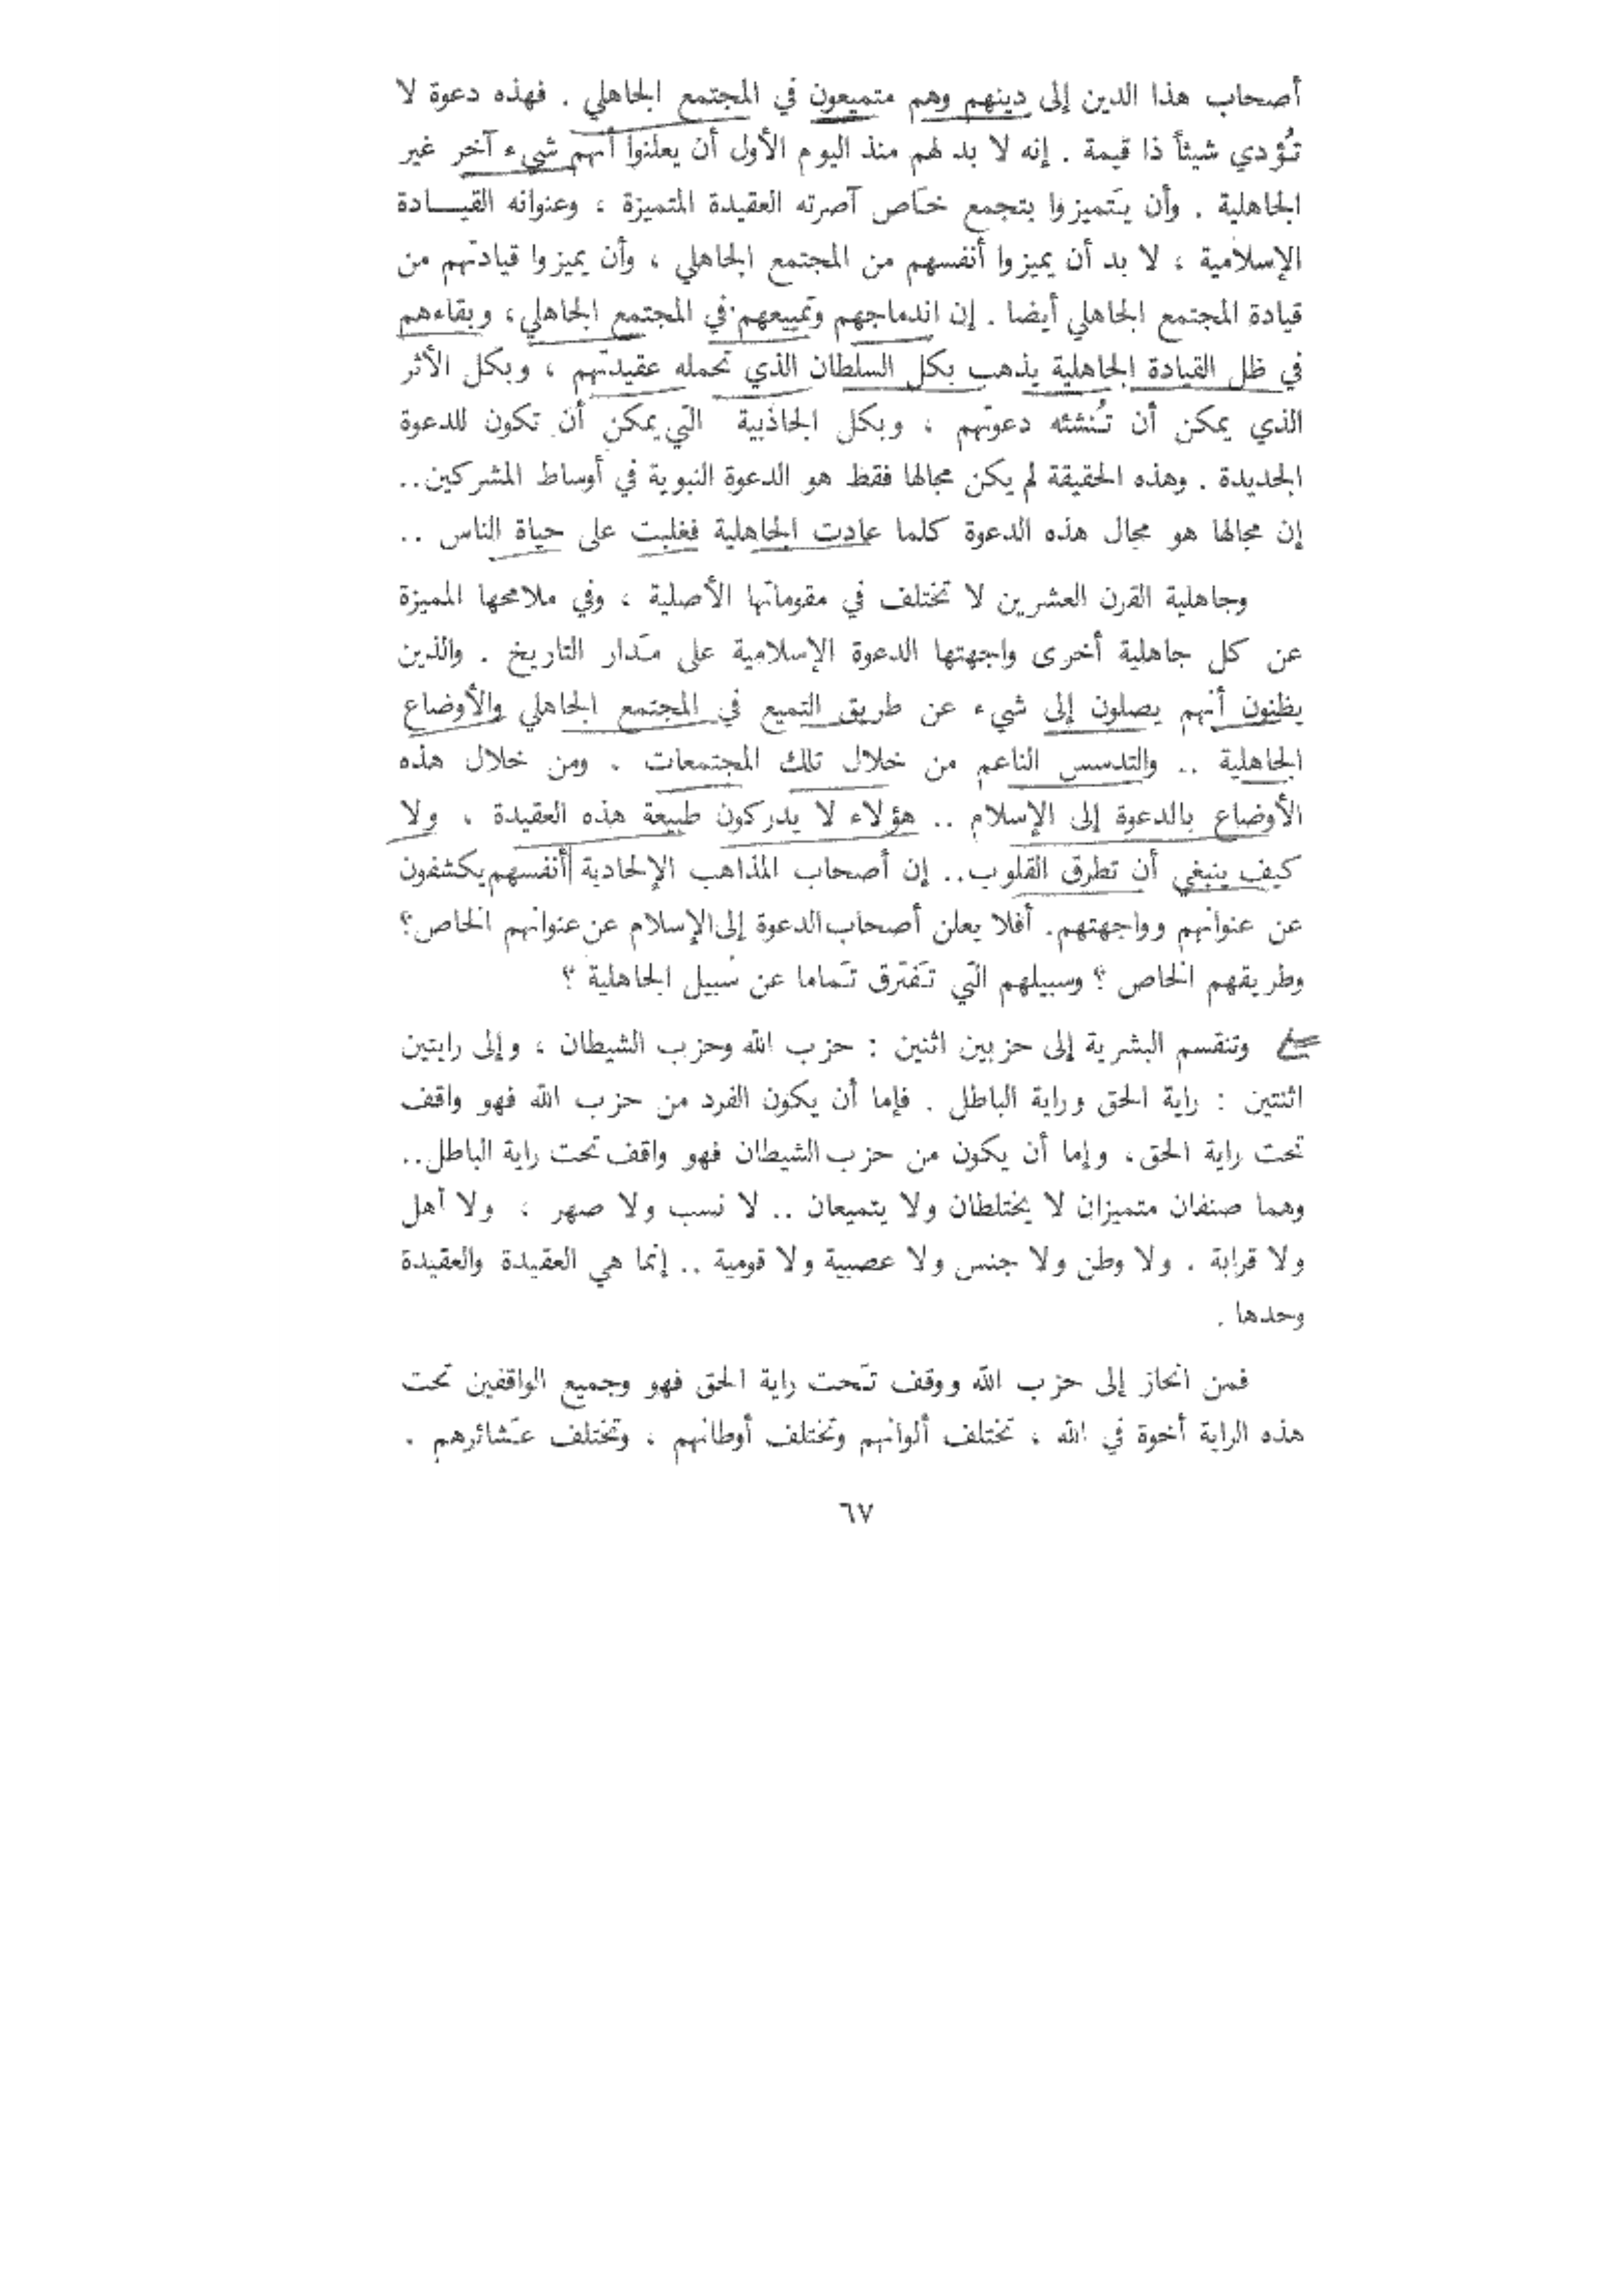 أصحاب هذا الدين إلى دينهم وهم متميعون في المجتمع الجاهلي . فهذه دعوة لا
تُؤدي شيئاً ذا قيمة . إنه لا بد لهم منذ اليوم الأول أن يعلنوا أنهم شيء آخر غير
الجاهلية . وأن يَتميزوا بتجمع خَاص آصرته العقيدة المتميزة ، وعنوانه القيـــادة
الإسلامية ، لا بد أن يميزوا أنفسهم من المجتمع الجاهلي ، وأن يميزوا قيادتهم من
قيادة المجتمع الجاهلي أيضا . إن اندماجهم وتمييعهم في المجتمع الجاهلي ، وبقاءهم
في ظل القيادة الجاهلية يذهب بكل السلطان الذي تحمله عقيدتهم ، وبكل الأثر
الذي يمكن أن تُنشئه دعوتهم ، وبكل الجاذبية التي يمكن أن تكون للدعوة
الجديدة . وهذه الحقيقة لم يكن مجالها فقط هو الدعوة النبوية في أوساط المشركين..
إن مجالها هو مجال هذه الدعوة كلما عادت الجاهلية فغلبت على حياة الناس ..
وجاهلية القرن العشرين لا تختلف في مقوماتها الأصلية ، وفي ملامحها المميزة
عن كل جاهلية أخرى واجهتها الدعوة الإسلامية على مَدار التاريخ . والذين
يظنون أنهم يصلون إلى شيء عن طريق التميع في المجتمع الجاهلي والأوضاع
الجاهلية .. والتدسس الناعم من خلال تلك المجتمعات . ومن خلال هذه
الأوضاع بالدعوة إلى الإسلام .. هؤلاء لا يدركون طبيعة هذه العقيدة ، ولا
كيف ينبغي أن تطرق القلوب.. إن أصحاب المذاهب الإلحادية أنفسهم يكشفون
عن عنوانهم وواجهتهم. أفلا يعلن أصحاب الدعوة إلى الإسلام عن عنوانهم الخاص؟
وطريقهم الخاص ؟ وسبيلهم التي تَفترق تَماما عن سَبيل الجاهلية ؟
وتنقسم البشرية إلى حزبين اثنين : حزب الله وحزب الشيطان ، وإلى رايتين
اثنتين : راية الحق وراية الباطل . فإما أن يكون الفرد من حزب الله فهو واقف
تحت راية الحق، وإما أن يكون من حزب الشيطان فهو واقف تحت راية الباطل..
وهما صنفان متميزان لا يختلطان ولا يتميعان .. لا نسب ولا صهر ، ولا أهل
ولا قرابة . ولا وطن ولا جنس ولا عصبية ولا قومية .. إنما هي العقيدة والعقيدة
وحدها .
فمن انحاز إلى حزب الله ووقف تَحت راية الحق فهو وجميع الواقفين تحت
هذه الراية أخوة في الله ، تختلف ألوانهم وتختلف أوطانهم ، وتختلف عَشائرهم .
٦٧